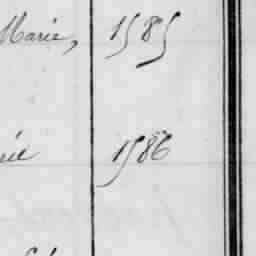 Marie, 1585
1586